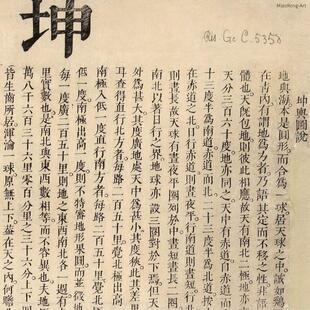 坤
Res Ge C. 5353
坤輿圖說
地與海本是圓形而合為一球居天球之中誠如雞
在青內有謂地為方者乃語其定而不移之性非語
體也天既包地則彼此相應故天有南北二極地亦
天分三百六十度地亦同之天中有赤道自赤道而
十三度半為南道赤道而北二十三度半為北道按
在赤道之北日行赤道則晝夜平行南道則晝短
則晝長故天球有晝夜平圈列於中晝短晝長二圈
南北以著日行之界地球亦設三圈對於下焉但天
外為甚大其度廣地處天中為甚小其度狹此其差
耳查得直行北方者每路二百五十里覺北極出高
極入低一度直行南方者每路二百五十里覺北極
低一度南極出高一度則不特審地形果圓而並徵
每一度廣二百五十里則地之東西南北各一週有
是南北與東西數相等而不容異也夫地
萬八千六百三十六里零百分里之三十六分上下四
皆生齒所居渾淪一球原無上下蓋在天之內何瞻
MiaoRong-Art